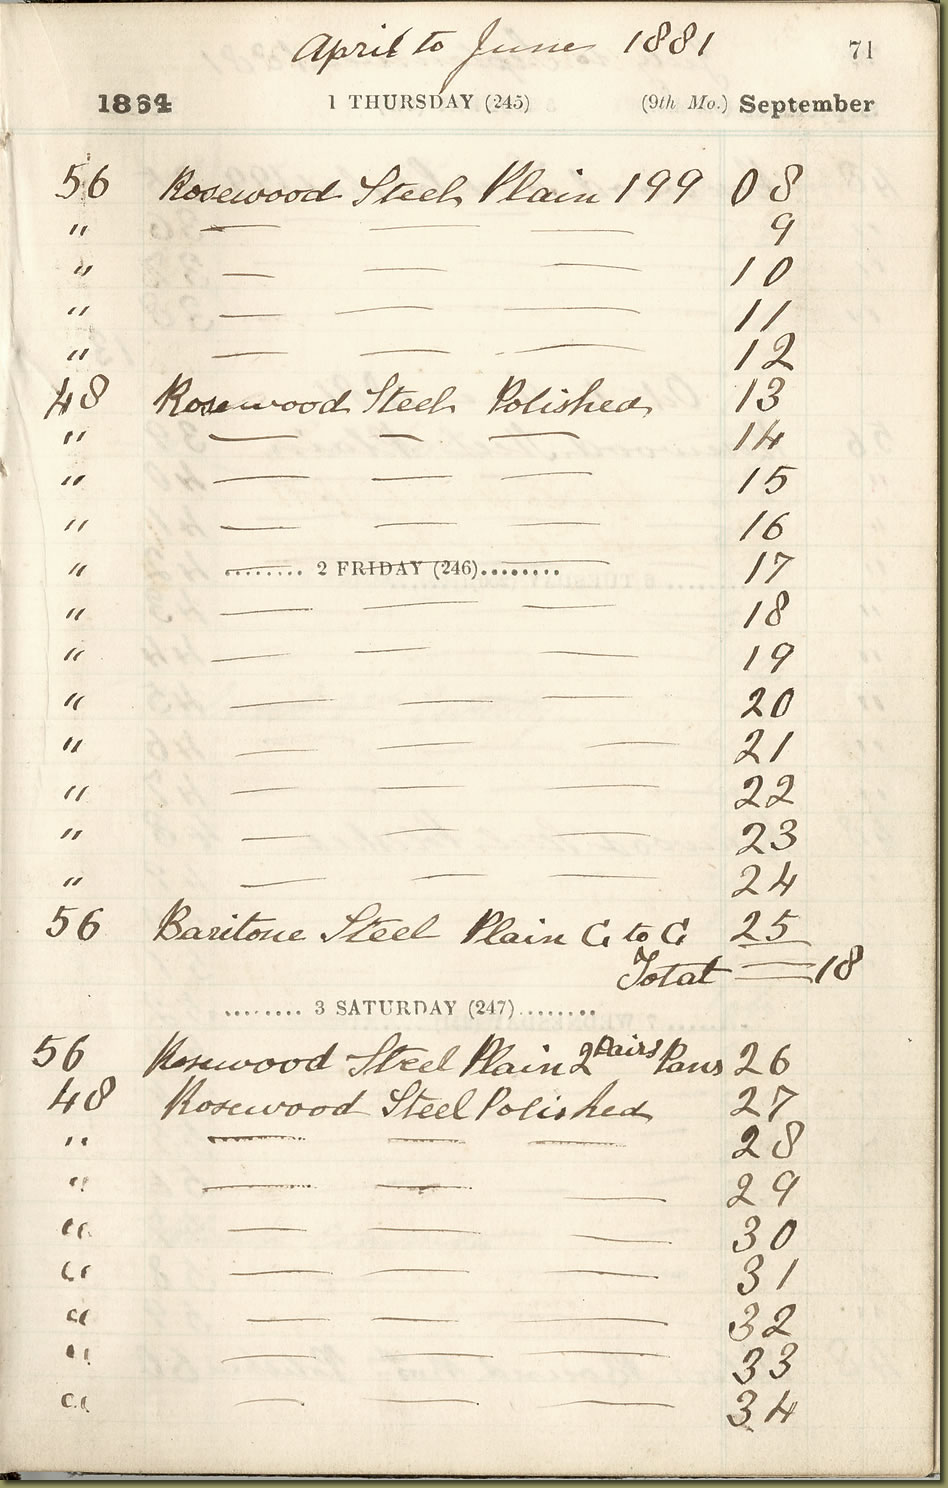 April to June 1881 71
1864 1 THURSDAY (245) (9th Mo.) September
56 Rosewood Steel Plain 199 08
" — — — 9
" — — — 10
" — — — 11
" — — — 12
48 Rosewood Steel Polished 13
" — — — 14
" — — — 15
" — — — 16
" ........ 2 FRIDAY (246)........ 17
" — — — 18
" — — — 19
" — — — 20
" — — — 21
" — — — 22
" — — — 23
" — — — 24
56 Baritone Steel Plain C to C 25
Total — 18
........ 3 SATURDAY (247)........
56 Rosewood Steel Plain 2 Pairs Pans 26
48 Rosewood Steel Polished 27
" — — — 28
" — — — 29
" — — — 30
" — — — 31
" — — — 32
" — — — 33
" — — — 34